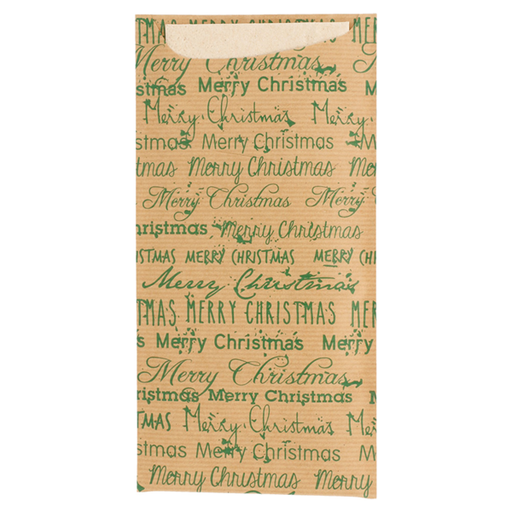 MERRY CHRISTMAS
Merry Christmas
istmas Merry Christmas
Merry Christmas
stmas Merry Christmas
tmas Merry Christmas
Merry Christmas Merry
hristmas Merry Christmas
ISTMAS MERRY CHRISTMAS MERRY CH
Merry Christmas
TMAS MERRY CHRISTMAS MERR
s Merry Christmas Merry Ch
Merry Christmas
istmas Merry Christmas
TMAS Merry Christmas
istmas Merry Christmas
Merry Christmas Merr